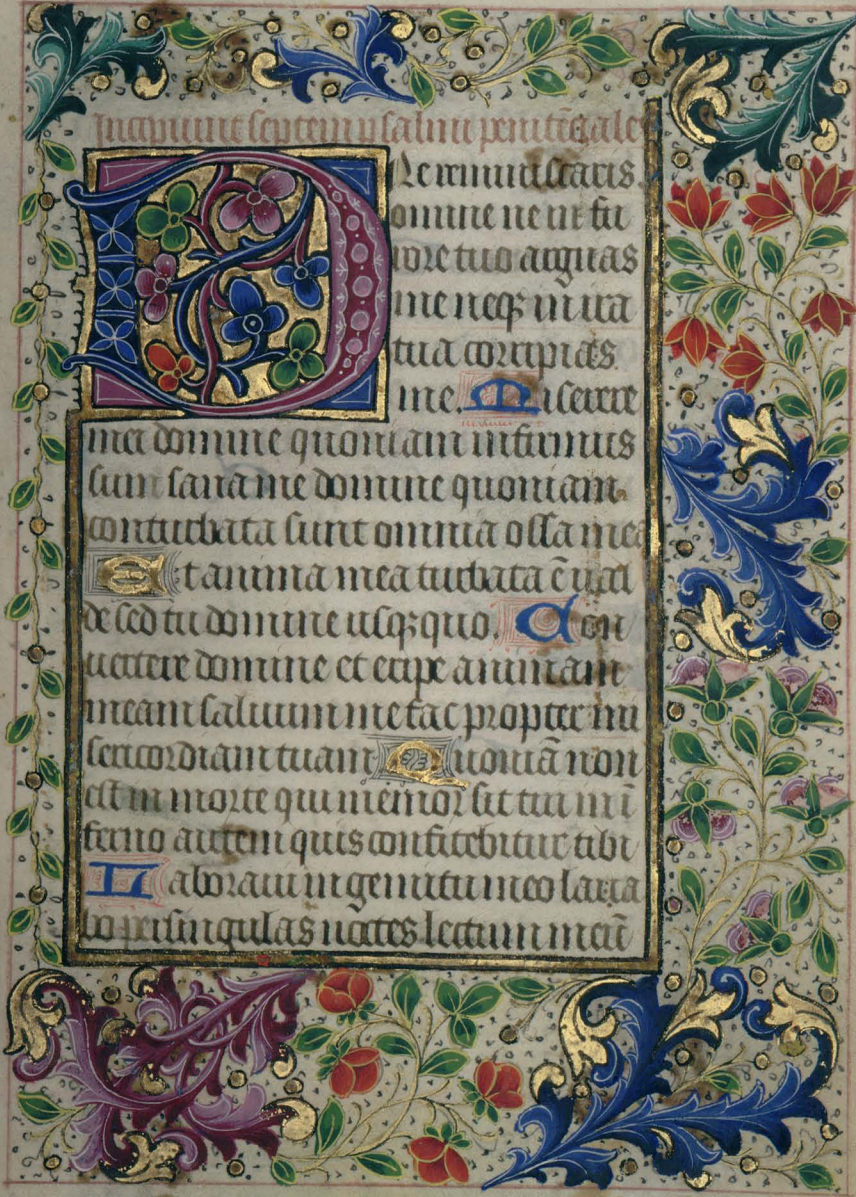 Incipiunt septem psalmi penitēciales
Ne reminiscaris.
Domine ne in fu
rore tuo arguas
me neqꝫ in ira
tua corripias
me. Miserere
mei domine quoniam infirmus
sum sana me domine quoniam
conturbata sunt omnia ossa mea
Et anima mea turbata ē ual
de sed tu domine usqꝫ quo. Con
uertere domine et eripe animam
meam saluum me fac propter mi
sericordiam tuam Quoniā non
est in morte qui memor sit tui in ī
ferno autem quis confitebitur tibi
Laboraui in gemitu meo laua
bo per singulas noctes lectum meū